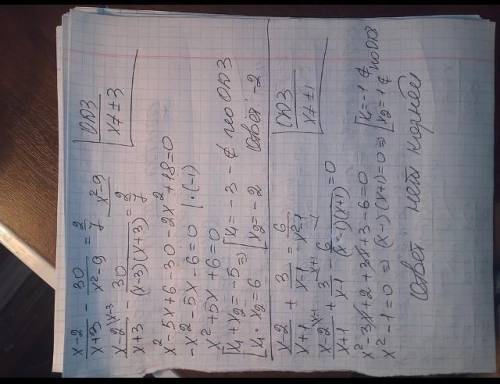 x-2/x+3 - 30/x²-9 = 2/7 x²-9
ОДЗ
x≠±3
x-2\x-3/x+3 - 30/(x-3)(x+3) = 2/7
x²-5x+6-30-2x²+18=0
-x²-5x-6=0 | ·(-1)
x²+5x+6=0
[x₁+x₂=-5 ⇒ [x₁=-3 - ∉ по ОДЗ
[x₁·x₂=6 [x₂=-2 Ответ: -2
x-2/x+1 + 3/x-1 = 6/x²-1
ОДЗ
x≠±1
x-2\x-1/x+1 + 3\x+1/x-1 - 6/(x-1)(x+1) = 0
x²-3x+2+3x+3-6=0
x²-1=0 ⇒ (x-1)(x+1)=0 ⇒ [x₁=-1 ∉
[x₂=1 ∉ по ОДЗ
Ответ нет корней